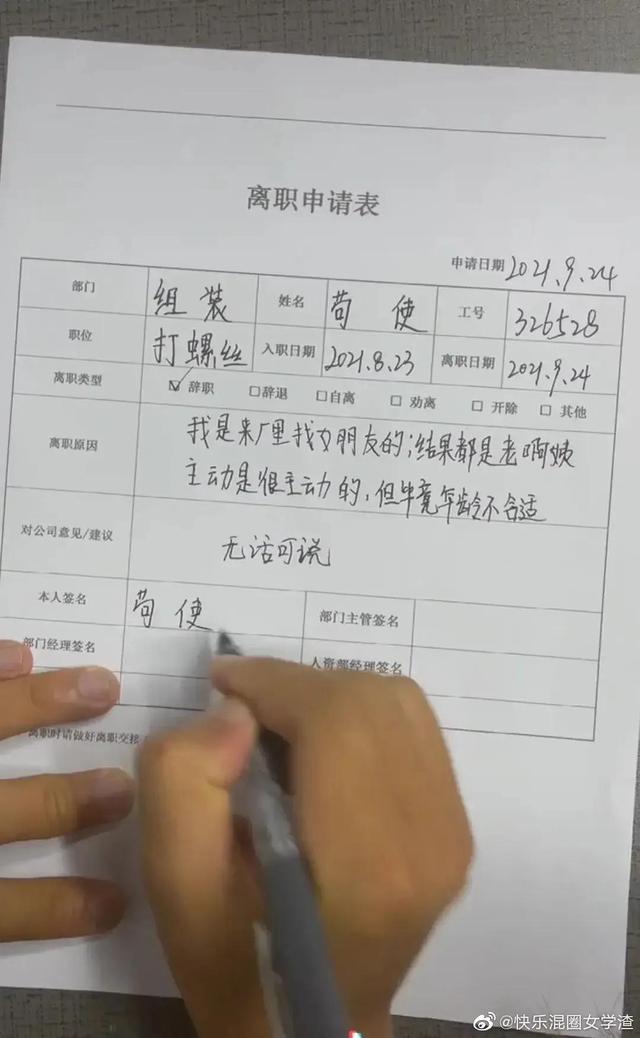 离职申请表
申请日期 2021.9.24
部门 组装 姓名 苟使 工号 326528
职位 打螺丝 入职日期 2021.8.23 离职日期 2021.9.24
离职类型 ☑辞职 □辞退 □自离 □劝离 □开除 □其他
离职原因 我是来厂里找女朋友的;结果都是老啊姨
主动是很主动的,但毕竟年龄不合适
对公司意见/建议 无话可说
本人签名 苟使 部门主管签名
部门经理签名 人资部经理签名
离职时请做好离职交接
@快乐混圈女学渣